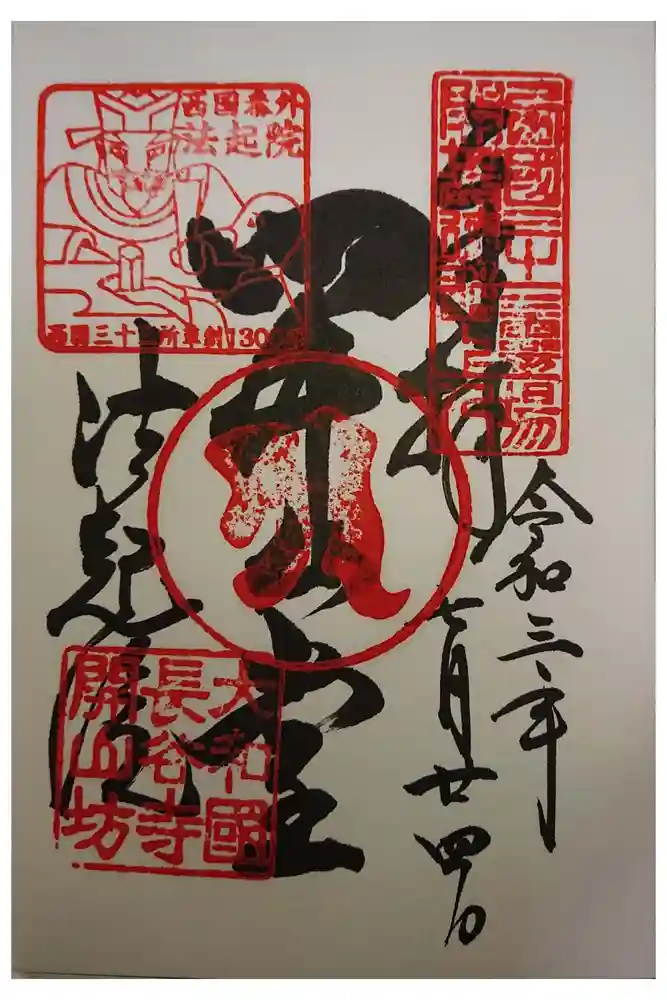 西國三十三霊場
奉拝
令和三年
七月廿四日
開山堂
西国番外
法起院
西国三十三所草創1300年
法起院
大和國
長谷寺
開山坊